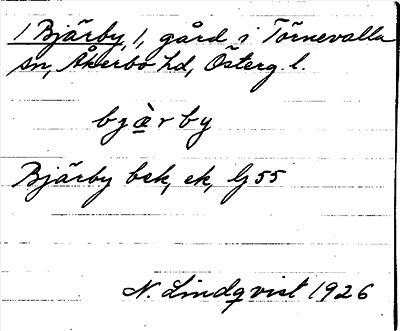 1 Bjärby, 1, gård i Törnevalla
sn, Åkerbo hd, Österg. l.
bjàrby
Bjärby bek, ek, Lj 55
N. Lindqvist 1926